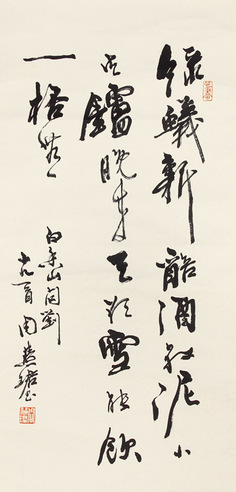 綠蟻新醅酒紅泥小
火鑪晚來天欲雪能飲
一桮無
白香山問劉
十九一首 周慧珺